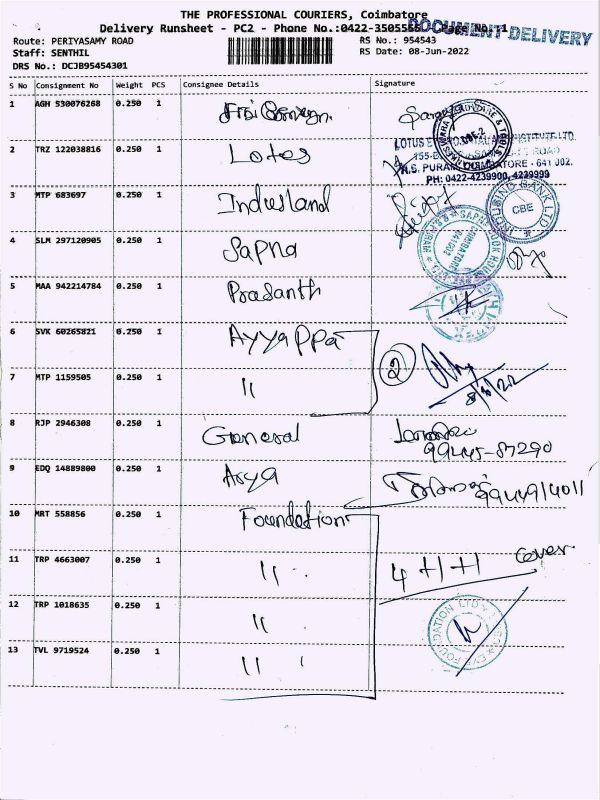 THE PROFESSIONAL COURIERS, Coimbatore
Delivery Runsheet - PC2 - Phone No.:0422-3505566 Page No.:1
DOCUMENT DELIVERY
Route: PERIYASAMY ROAD
RS No.: 954543
Staff: SENTHIL
RS Date: 08-Jun-2022
DRS No.: DCJB95454301
S No Consignment No Weight PCS Consignee Details Signature
1 AGH 530076268 0.250 1
2 TRZ 122038816 0.250 1 Lotes
LOTUS EYE
N.S. PURAM, COIMBATORE - 641 002.
PH: 0422-4239900, 4239999
3 MTP 683697 0.250 1 Indusland
INDUSIND BANK LTD. CBE
4 SLM 297120905 0.250 1 Sapna
SAPNA BOOK HOUSE COIMBATORE
5 MAA 942214784 0.250 1 Prasanth
6 SVK 60265821 0.250 1 Ayyappa
7 MTP 1159505 0.250 1 11 2
8/6/22
8 RJP 2946308 0.250 1 General
99445-87290
9 EDQ 14889800 0.250 1 Arya
9944914011
10 MRT 558856 0.250 1 Foundation
11 TRP 4663007 0.250 1 11 4+1+1 cover
12 TRP 1018635 0.250 1 11
FOUNDATION LTD
13 TVL 9719524 0.250 1 11